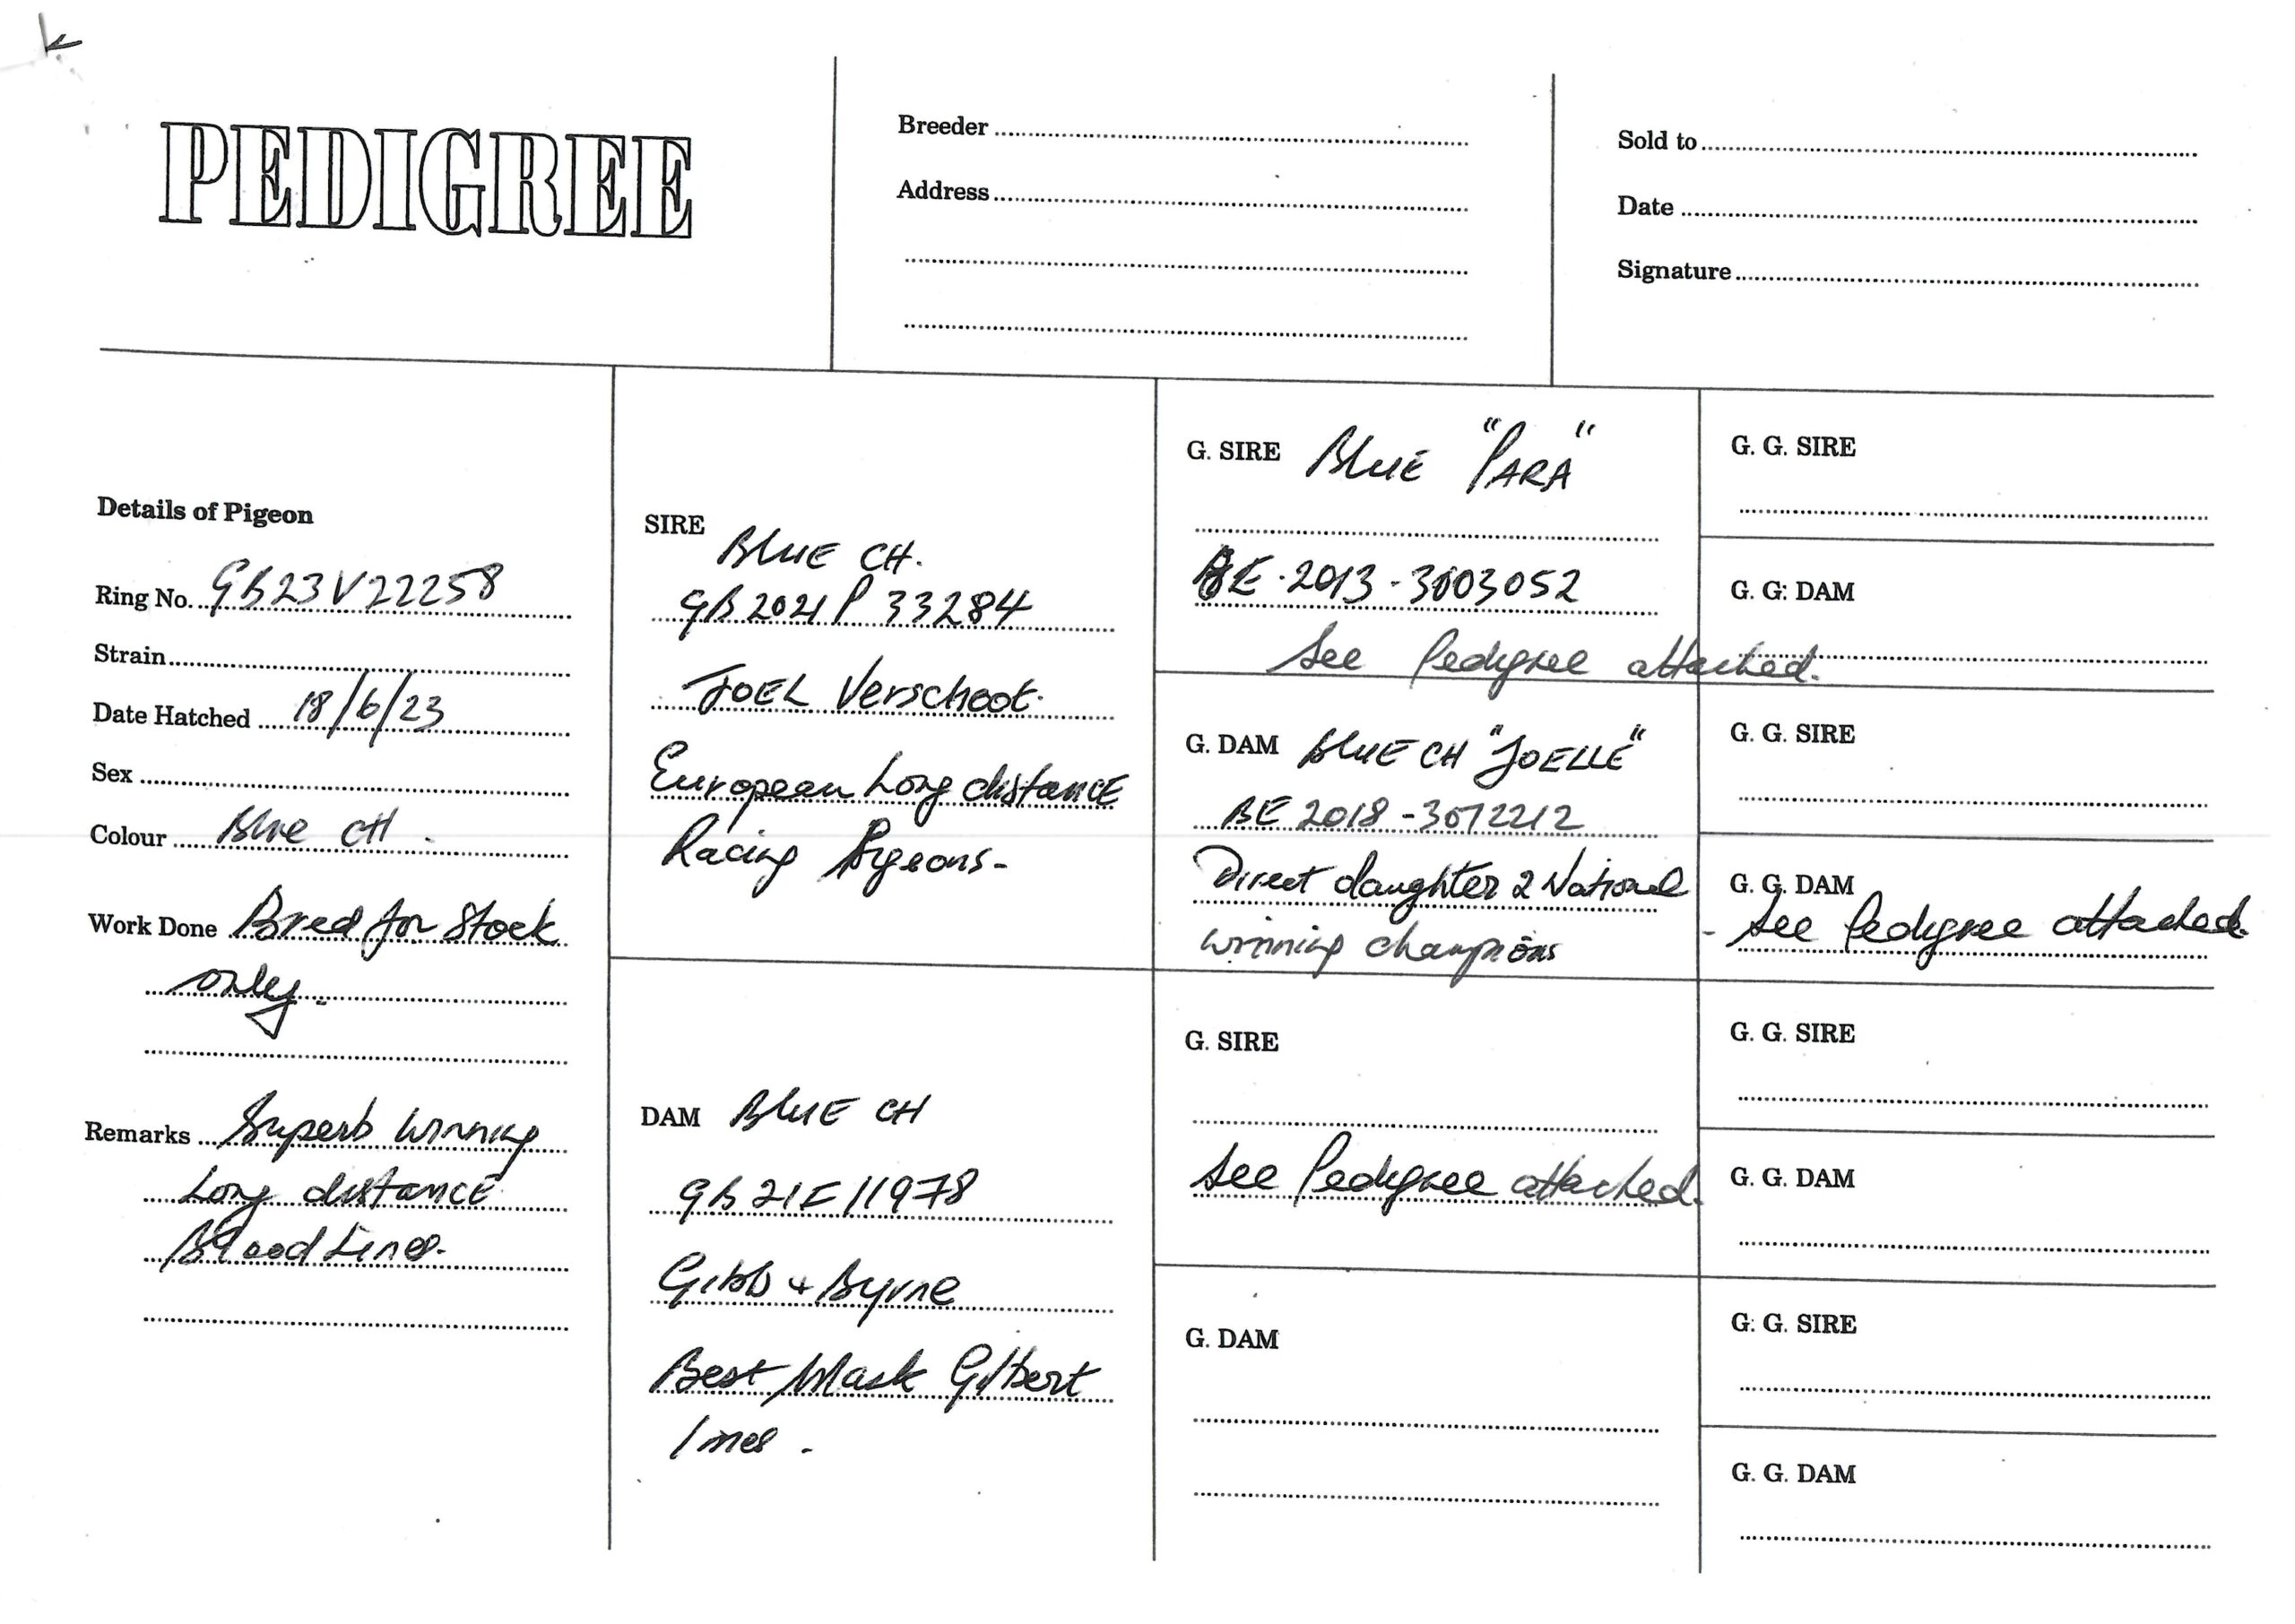 PEDIGREE
Breeder
Address
Sold to
Date
Signature
Details of Pigeon
Ring No. GB23V22258
Strain
Date Hatched 18/6/23
Sex
Colour Blue CH.
Work Done Bred for Stock
only.
Remarks Superb Winning
Long distance
Blood Lines.
SIRE
BLUE CH.
GB2021 P 33284
JOEL Verschoot.
European Long distance
Racing Pigeons-
DAM BLUE CH
GB 21 E 11978
Gibb + Byrne
Best Mark Gilbert
lines.
G. SIRE BLUE "PARA"
BE-2013-3003052
See Pedigree attached.
G. DAM BLUE CH "JOELLE"
BE 2018-3072212
Direct daughter 2 National
winning champions
G. SIRE
See Pedigree attached.
G. DAM
G. G. SIRE
G. G: DAM
G. G. SIRE
G. G. DAM
- See Pedigree attached.
G. G. SIRE
G. G. DAM
G. G. SIRE
G. G. DAM